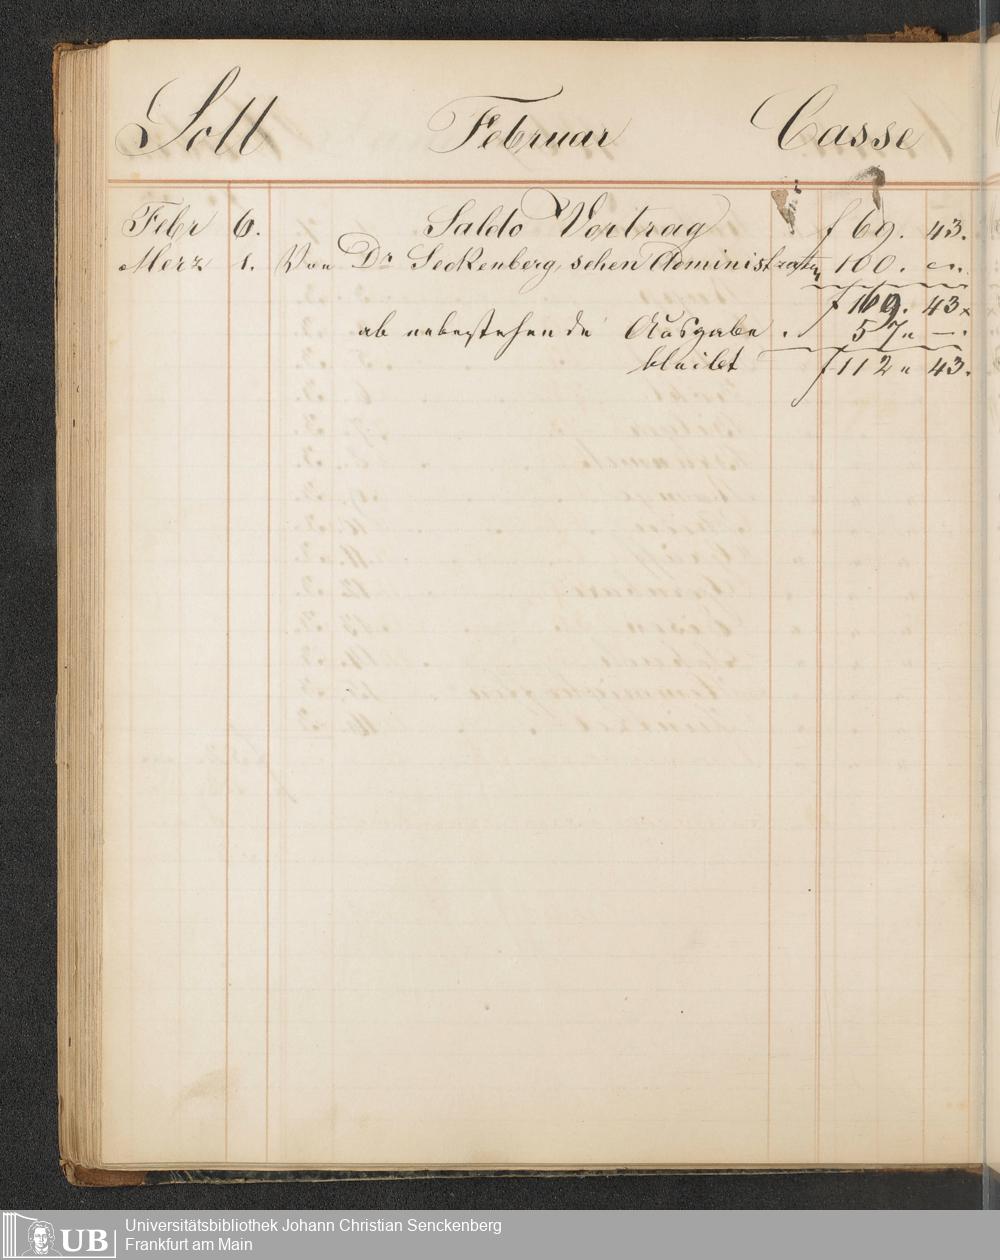 Soll Februar Casse
Febr 6. Saldo Vortrag f 69. 43.
Merz 1. Von Dr Seckenberg, schen Administration 100. —.
f 169. 43x
ab nebestehende Ausgabe . 57 " —.
bleibt f 112 " 43.
Universitätsbibliothek Johann Christian Senckenberg
Frankfurt am Main
UB